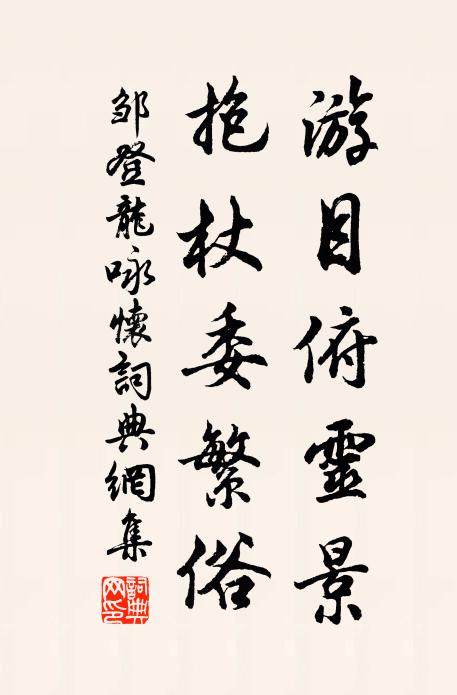 游目俯靈景
抱杖委繁俗
鄒登龍咏懷詞典網集
詞典網印